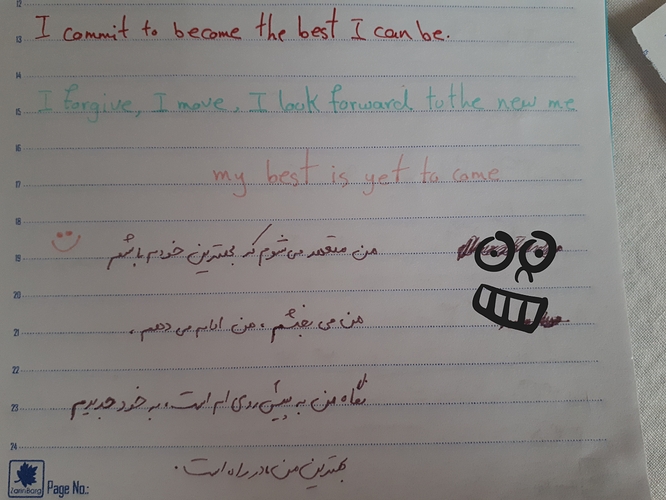 12
13 I commit to become the best I can be.
14
15 I forgive, I move, I look forward to the new me
16
17 my best is yet to come
18
19 من متعهد می شوم که بهترین خودم باشم
20
21 من می بخشم، من ادامه می دهم.
22
23 نگاه من به پیش روی ام است، به خود جدیدم
24
بهترین من در راه است.
Zarrinbarg Page No.: